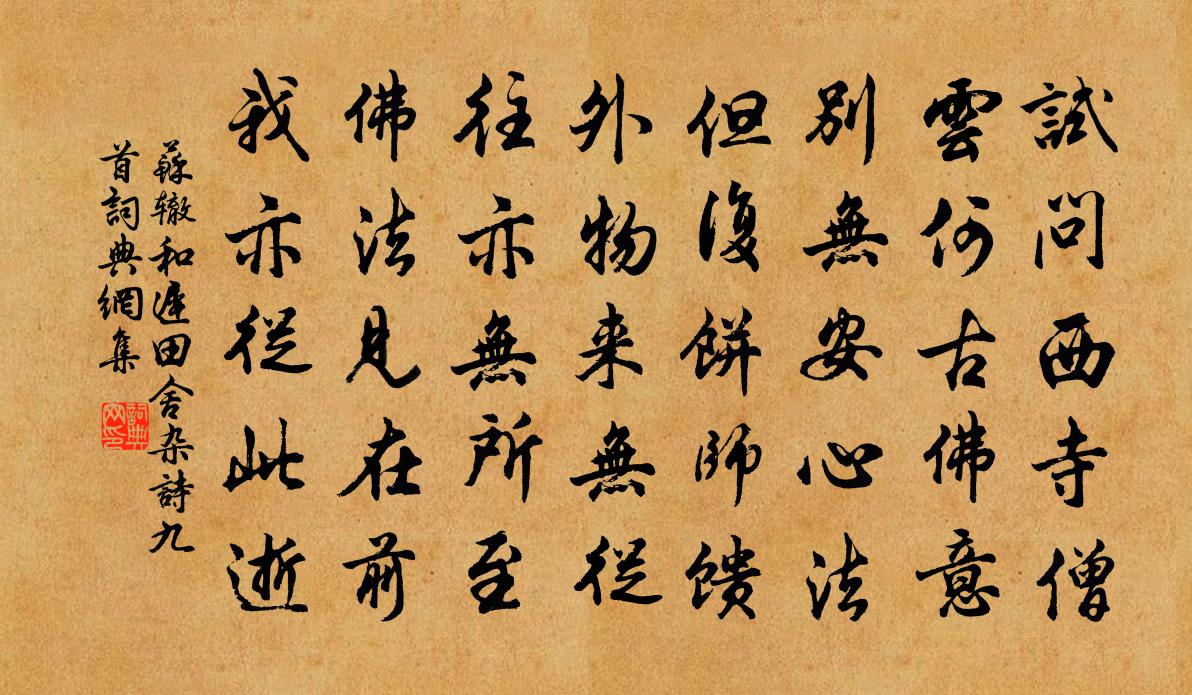 試問西寺僧
雲何古佛意
別無安心法
但復餅師饋
外物来無從
往亦無所至
佛法見在前
我亦從此逝
蘇辙和遲田舍杂詩九
首詞典網集
詞典網印